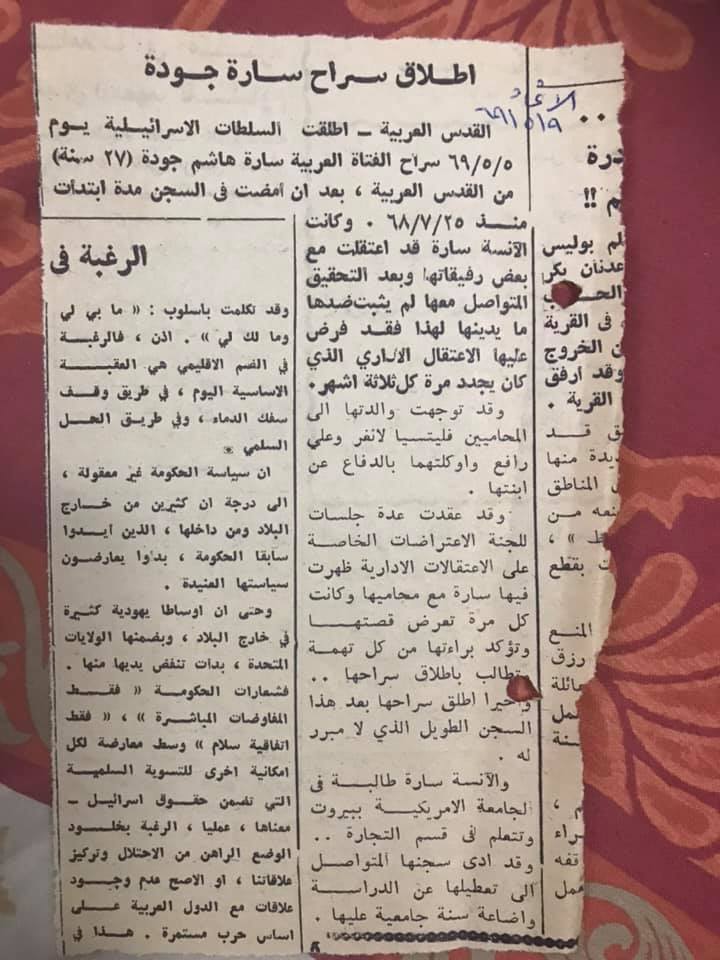 اطلاق سراح سارة جودة
الاتحاد
٦٩/٥/٩
القدس العربية ــ اطلقت السلطات الاسرائيلية يوم
٦٩/٥/٥ سراح الفتاة العربية سارة هاشم جودة (٢٧ سنة)
من القدس العربية ، بعد ان أمضت في السجن مدة ابتدأت
منذ ٦٨/٧/٢٥ . وكانت
الآنسة سارة قد اعتقلت مع
بعض رفيقاتها وبعد التحقيق
المتواصل معها لم يثبت ضدها
ما يدينها لهذا فقد فرض
عليها الاعتقال الاداري الذي
كان يجدد مرة كل ثلاثة اشهر .
وقد توجهت والدتها الى
المحاميين فليتسيا لانغر وعلي
رافع واوكلتهما بالدفاع عن
ابنتها .
وقد عقدت عدة جلسات
للجنة الاعتراضات الخاصة
على الاعتقالات الادارية ظهرت
فيها سارة مع محاميها وكانت
كل مرة تعرض قصتها
وتؤكد براءتها من كل تهمة
وتطالب باطلاق سراحها ..
وأخيرا اطلق سراحها بعد هذا
السجن الطويل الذي لا مبرر
له .
والآنسة سارة طالبة في
الجامعة الامريكية ببيروت
وتتعلم في قسم التجارة ..
وقد ادى سجنها المتواصل
الى تعطيلها عن الدراسة
واضاعة سنة جامعية عليها .
الرغبة في
وقد تكلمت باسلوب : « ما بي لي
وما لك لي » . اذن ، فالرغبة
في الضم الاقليمي هي العقبة
الاساسية اليوم ، في طريق وقف
سفك الدماء ، وفي طريق الحل
السلمي
ان سياسة الحكومة غير معقولة ،
الى درجة ان كثيرين من خارج
البلاد ومن داخلها ، الذين أيدوا
سابقا الحكومة ، بدأوا يعارضون
سياستها العنيدة .
وحتى ان اوساطا يهودية كثيرة
في خارج البلاد ، وبضمنها الولايات
المتحدة ، بدأت تنفض يديها منها .
فشعارات الحكومة « فقط
المفاوضات المباشرة » ، « فقط
اتفاقية سلام » وسط معارضة لكل
امكانية اخرى للتسوية السلمية
التي تضمن حقوق اسرائيل ــ
معناها ، عمليا ، الرغبة بخلود
الوضع الراهن من الاحتلال وتركيز
علاقاتنا ، او الاصح عدم وجود
علاقات مع الدول العربية على
اساس حرب مستمرة . هذا في
درة
م !!
بوليس
عدنان بكر
في القرية
الخروج
وقد أرفق
القرية .
ق قد
ديدة منها
المناطق
نعه من
ظ » ،
ت بقطع
المنع
رزق
عائلة
عمل
سنة
م ،
راء
تفه
عمل